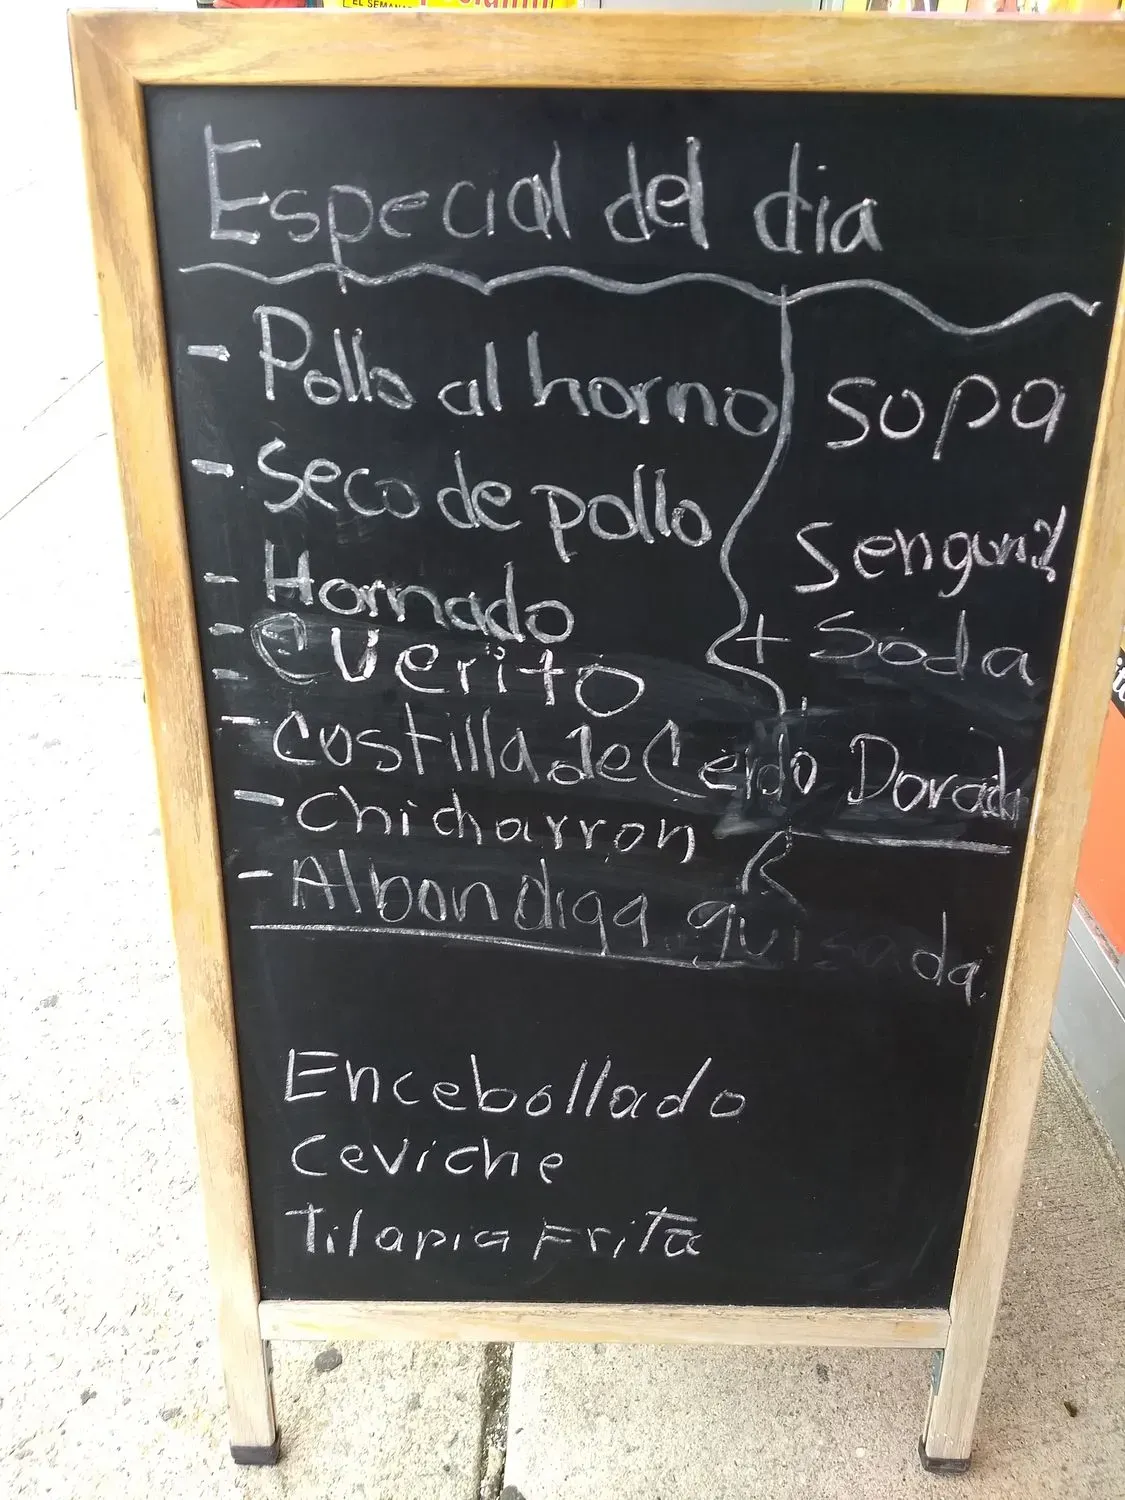 EL SEMANA
Especial del dia
- Pollo al horno
- Seco de pollo
- Hornado
- Cuerito
- Costilla de Cerdo Dorada
- Chicharron
- Albondiga guisada.
Sopa
+ Soda
Encebollado
Ceviche
Tilapia Frita